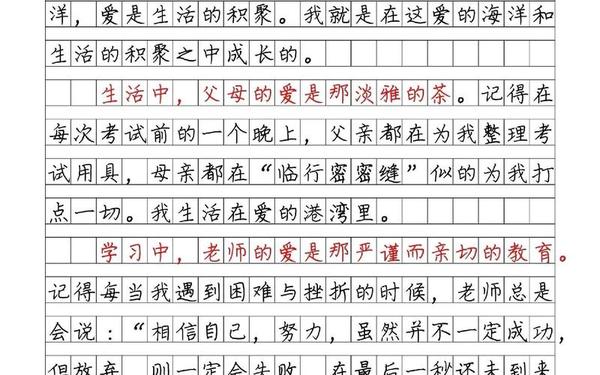 洋，爱是生活的积聚。我就是在这爱的海洋和
生活的积聚之中成长的。
生活中，父母的爱是那淡雅的茶。记得在
每次考试前的一个晚上，父亲都在为我整理考
试用具，母亲都在“临行密密缝”似的为我打
点一切。我生活在爱的港湾里。
学习中，老师的爱是那严谨而亲切的教育。
记得每当我遇到困难与挫折的时候，老师总是
会说：“相信自己，努力，虽然并不一定成功，
但放弃，则一定会失败。在最后一秒还未到来